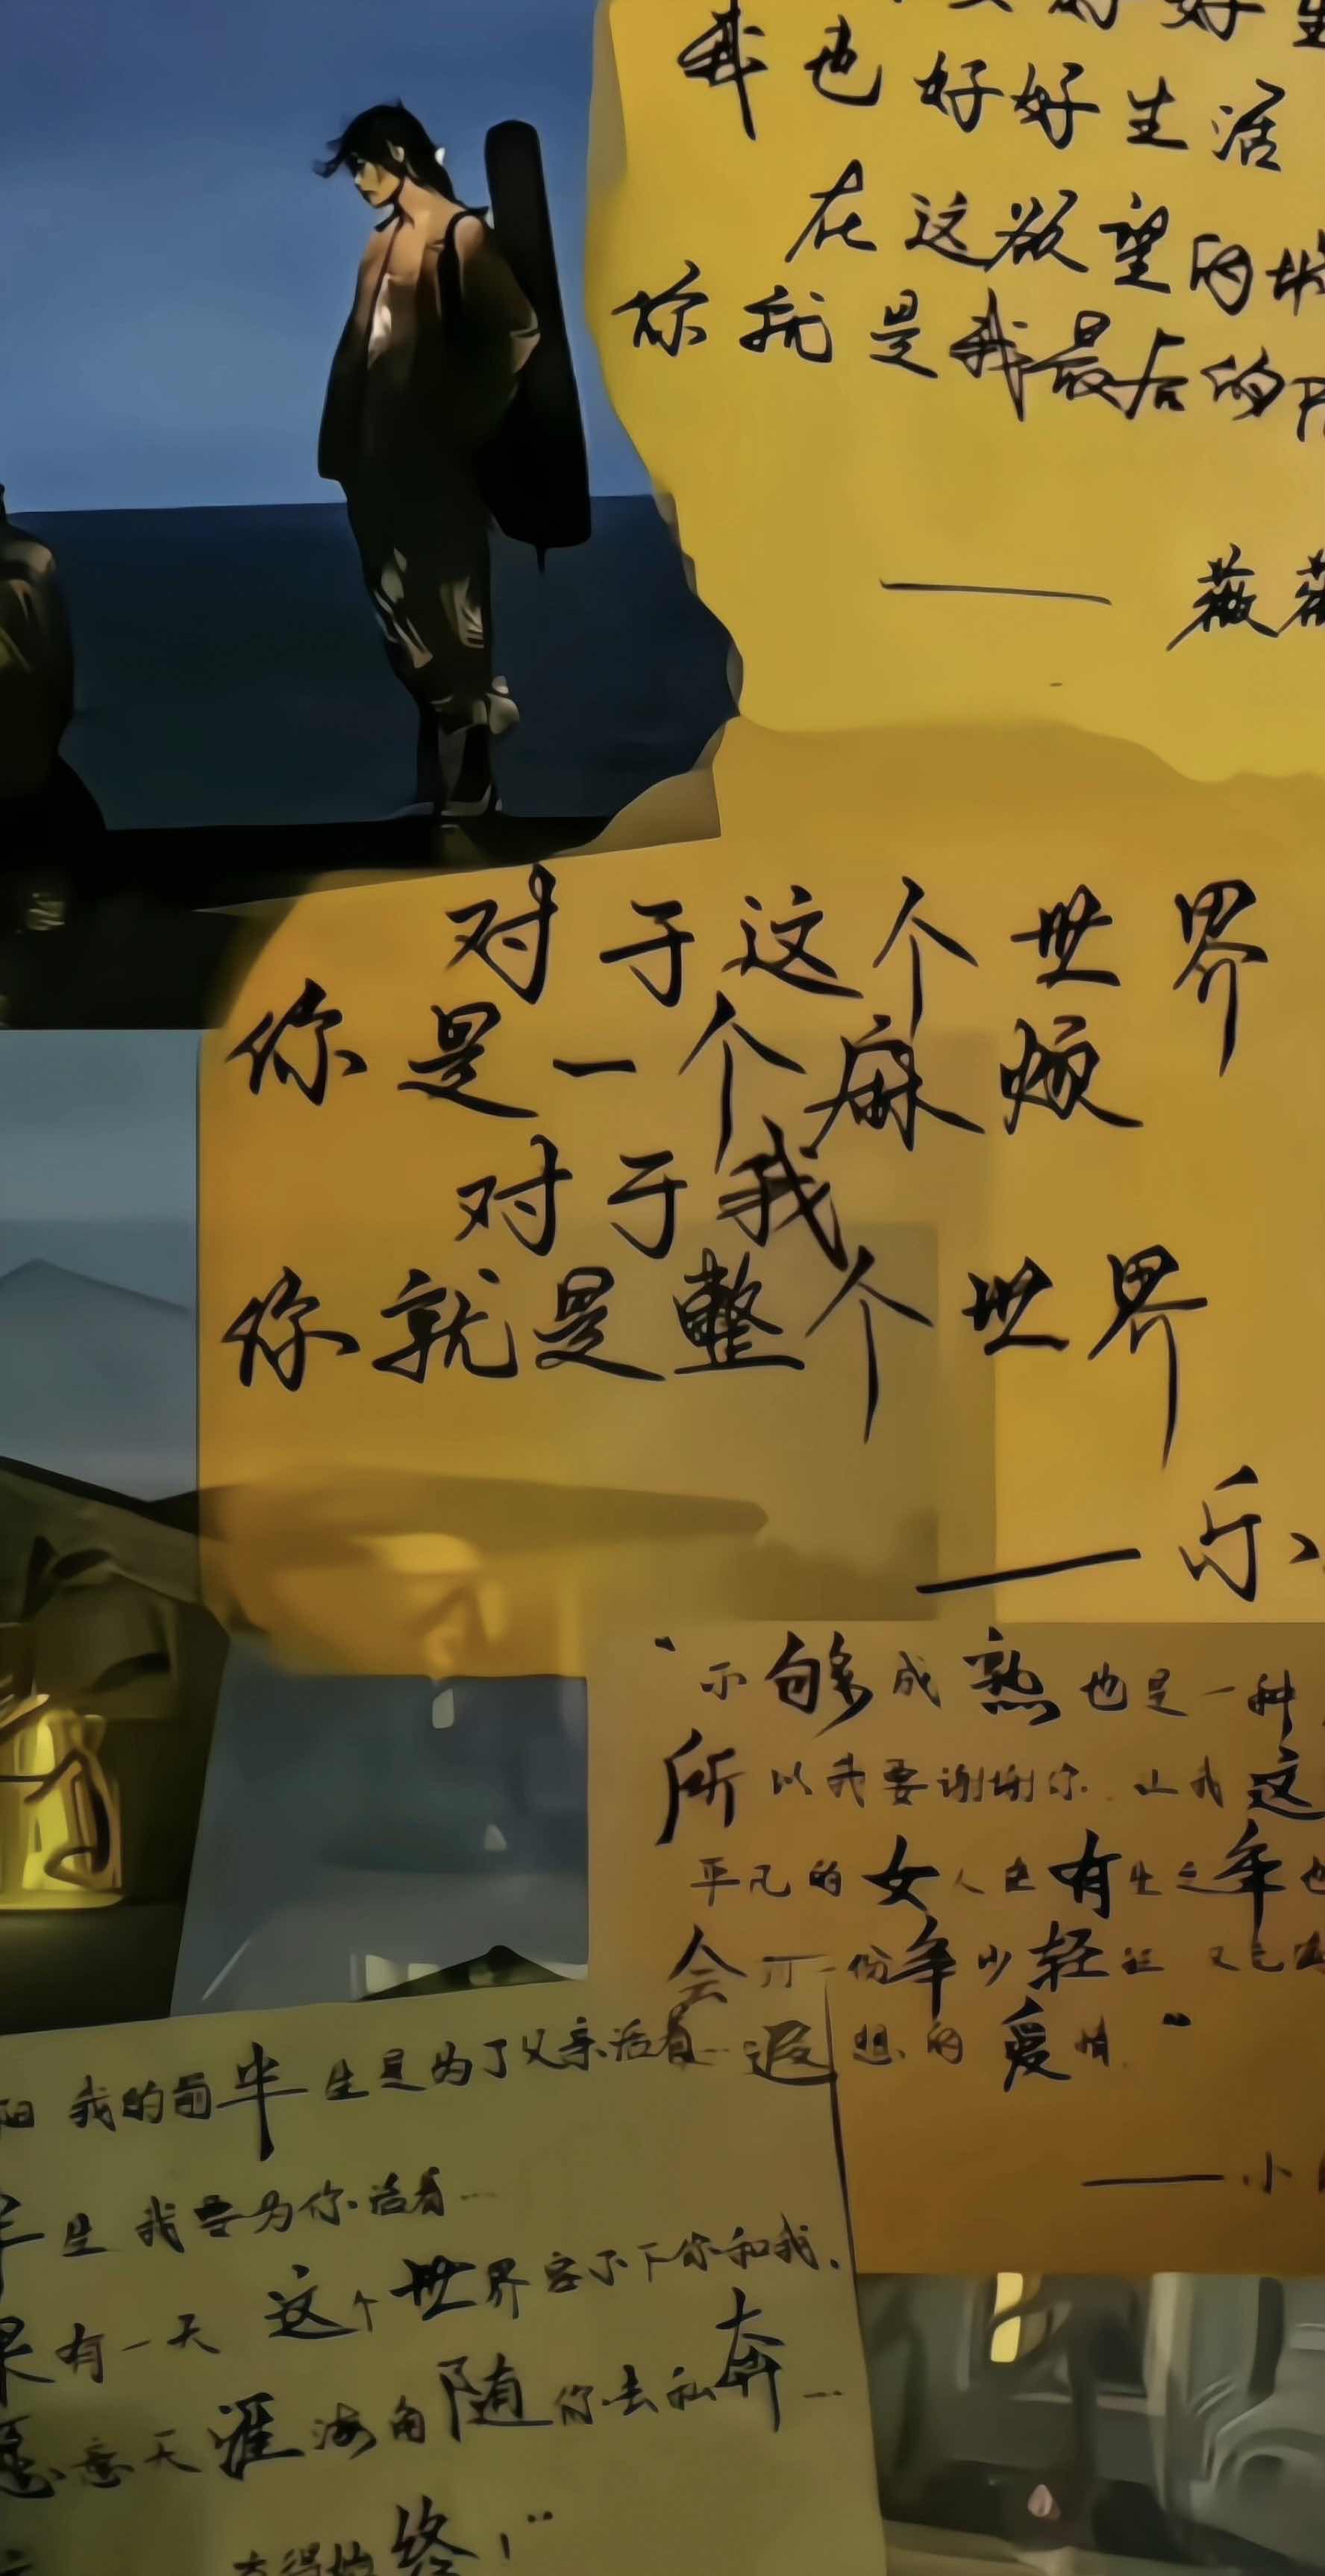 好好
我也好好生活
在这欲望的城
你就是我最后的
—— 薇薇
对于这个世界
你是一个麻烦
对于我
你就是整个世界
—— 乐
“不够成熟也是一种
所以我要谢谢你 让我这
平凡的女人在有生之年也
会有一份年少轻狂 又
遐想的爱情”
—— 小
阳 我的前半生是为了父亲活着…
半生 我要为你活着…
果有一天 这个世界容不下你和我.
愿意天涯海角随你去私奔…
终！”